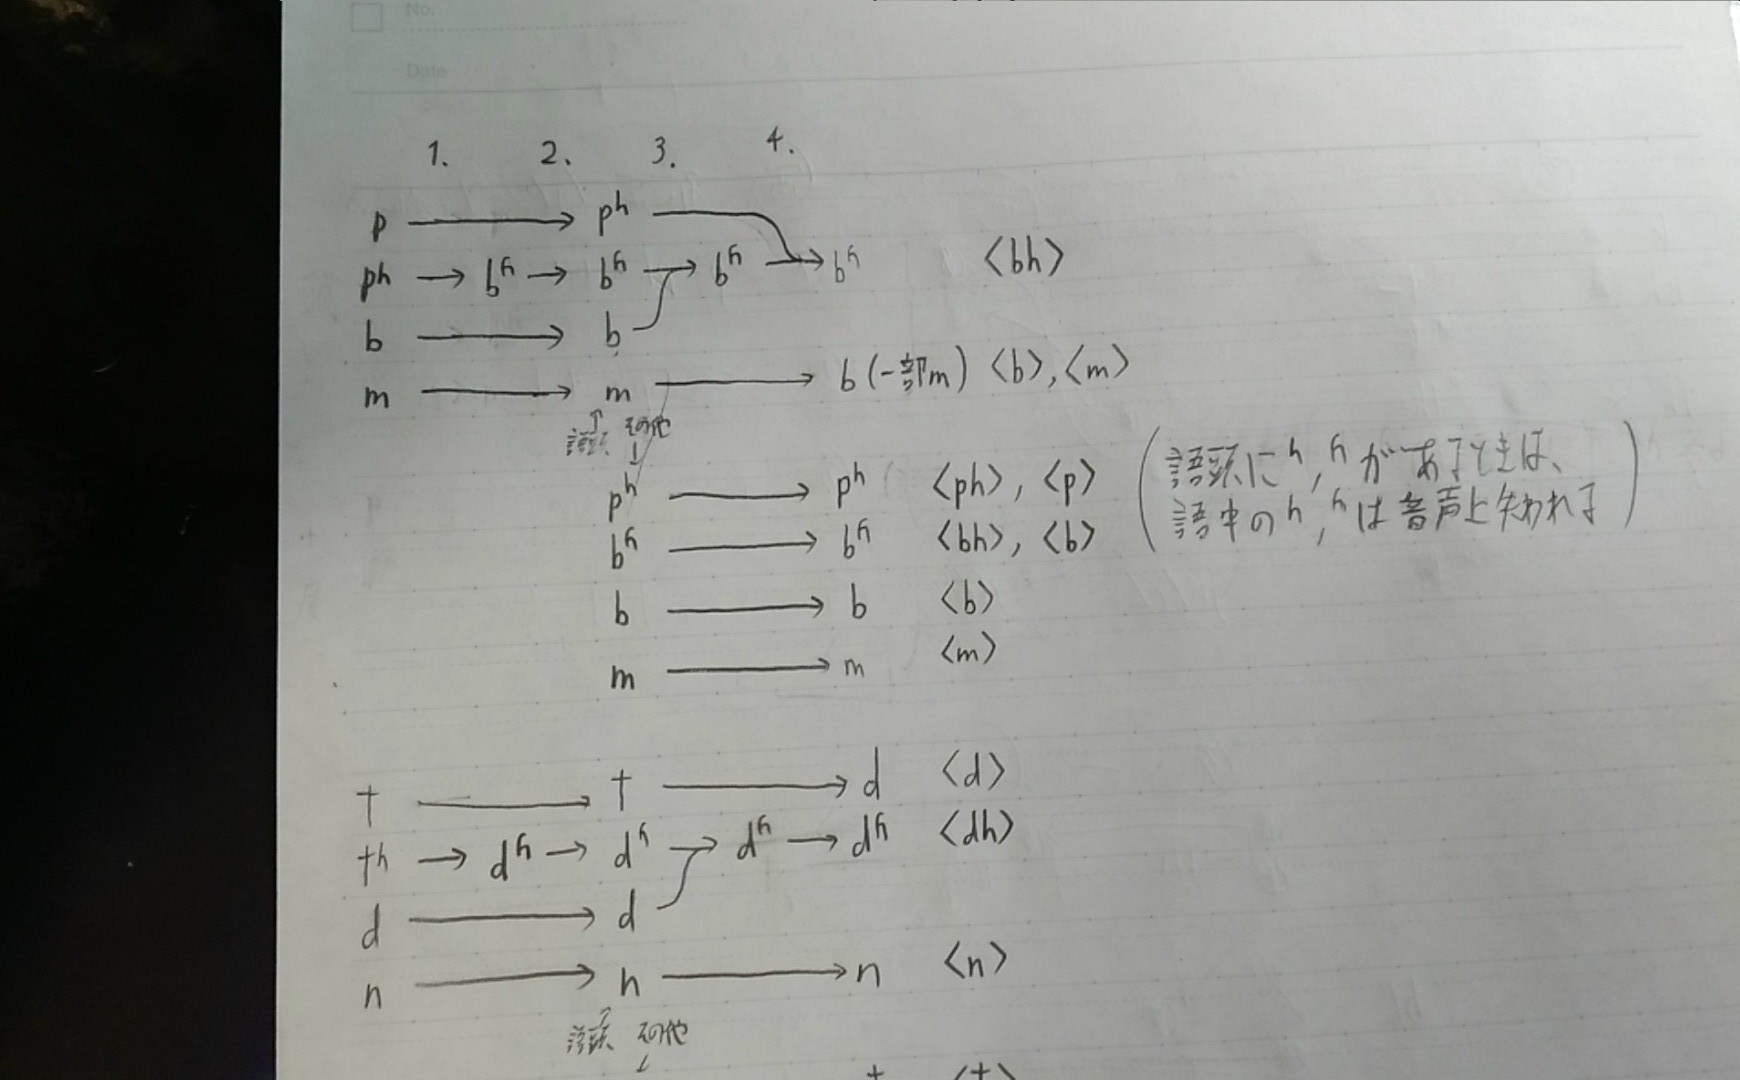 No.
Date
1. 2. 3. 4.
p → pʰ → bʱ <bh>
ph → bʱ → bʱ → bʱ → bʱ
b → b
m → m → b (一部m) <b>, <m>
↑語頭 その他↓
pʰ → pʰ <ph>, <p> (語頭にʰ, ʱがあるときは、
bʱ → bʱ <bh>, <b> 語中のʰ, ʱは音声上失われる)
b → b <b>
m → m <m>
t → t → d <d>
th → dʱ → dʱ → dʱ → dʱ <dh>
d → d
n → n → n <n>
↑語頭 その他↓
t <t>